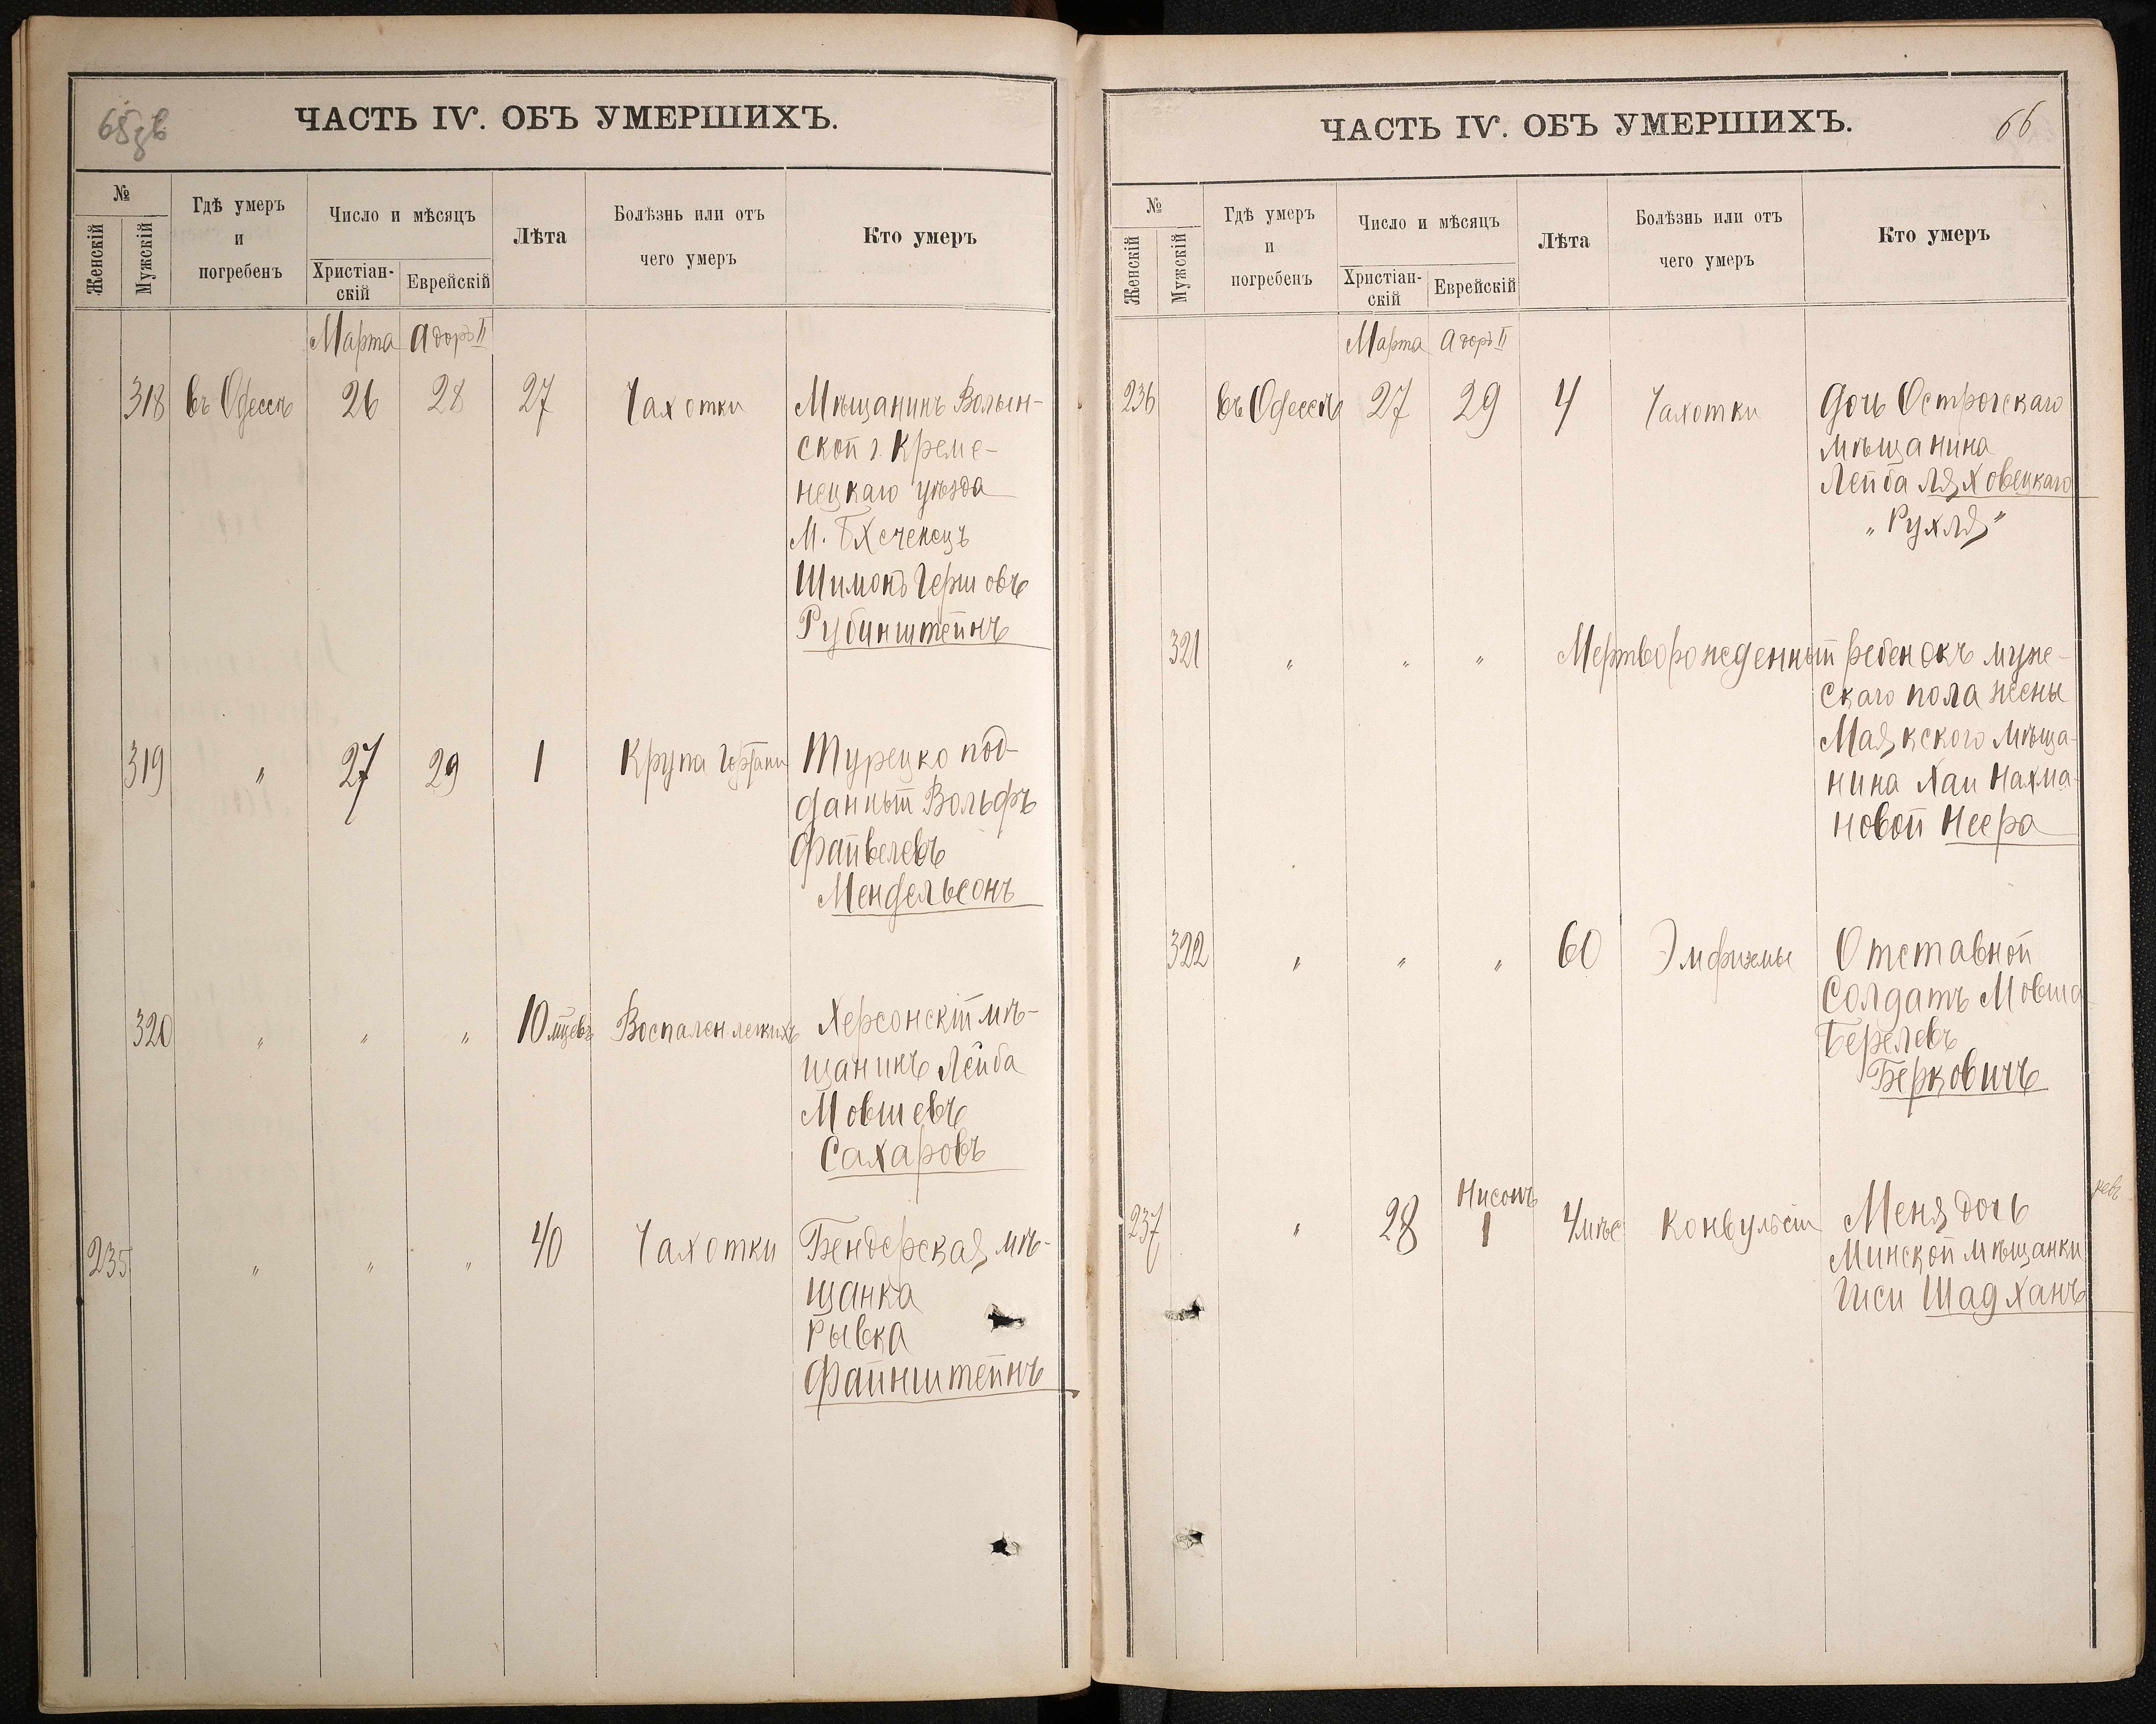 65 об
ЧАСТЬ IV. ОБЪ УМЕРШИХЪ.
№
Женскій
Мужскій
Гдѣ умеръ
и
погребенъ
Число и мѣсяцъ
Христіан-
скій
Еврейскій
Лѣта
Болѣзнь или отъ
чего умеръ
Кто умеръ
Марта Адоръ II
318 въ Одессѣ 26 28 27 Чахотки Мѣщанинъ Волын-
ской г. Креме-
нецкаго уѣзда
М.
Шимонъ Гершовъ
Рубинштейнъ
319 " 27 29 1 Крупа гортани Турецко под-
данный Вольфъ
Файвелевъ
Мендельсонъ
320 " " " 10 мцевъ Воспален легкихъ Херсонскій мѣ-
щанинъ Лейба
Мовшевъ
Сахаровъ
235 " " " 40 Чахотки Бендерская мѣ-
щанка
Рывка
Файнштейнъ
66
ЧАСТЬ IV. ОБЪ УМЕРШИХЪ.
№
Женскій
Мужскій
Гдѣ умеръ
и
погребенъ
Число и мѣсяцъ
Христіан-
скій
Еврейскій
Лѣта
Болѣзнь или отъ
чего умеръ
Кто умеръ
Марта Адоръ II
236 въ Одессѣ 27 29 4 Чахотки Дочь Острогскаго
мѣщанина
Лейба Ляховецкаго
"Рухля"
321 " " " Мертворожденный ребенокъ муже-
скаго пола жены
Маякского мѣща-
нина Хаи Нахма-
новой Неера
322 " " " 60 Отставной
Солдатъ Мовша
Берелевъ
Берковичъ
Нисонъ
237 " 28 1 4 мѣс Конвульсіи Меня дочь
Минской мѣщанки
Гиси Шадханъ